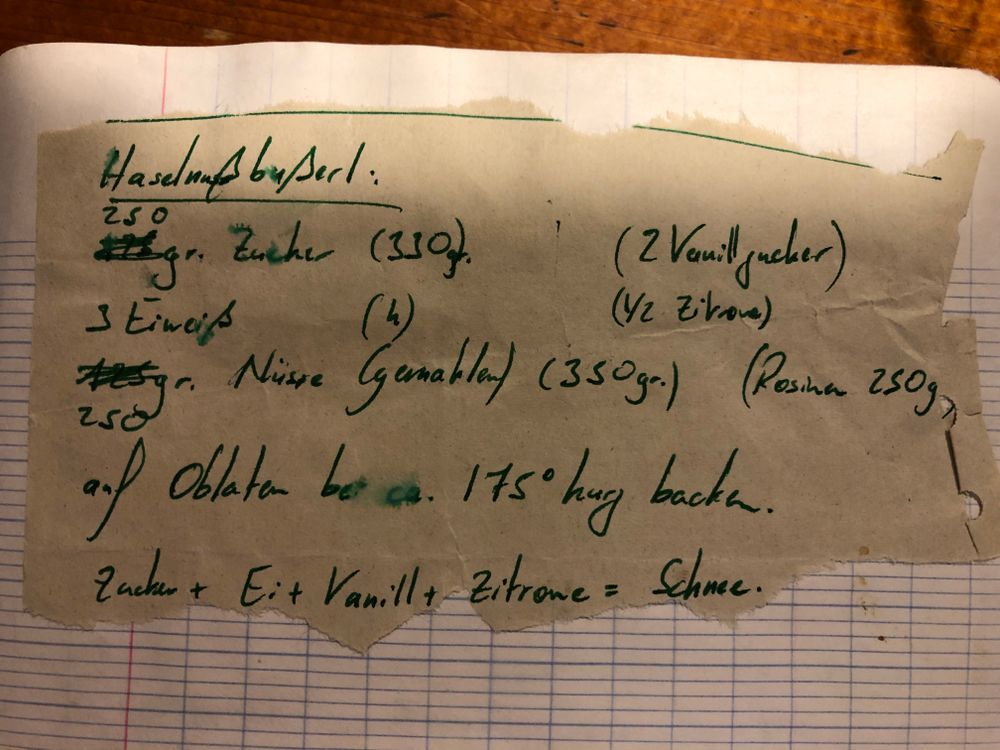 Haselnußbußerl.
250
gr. Zucker (330gr. (2 Vanillzucker)
3 Eiweiß (4) (1/2 Zitrone)
gr. Nüsse (gemahlen) (350gr.) (Rosinen 250g,
250
auf Oblaten bei ca. 175° kurz backen.
Zucker + Ei + Vanill + Zitrone = Schnee.